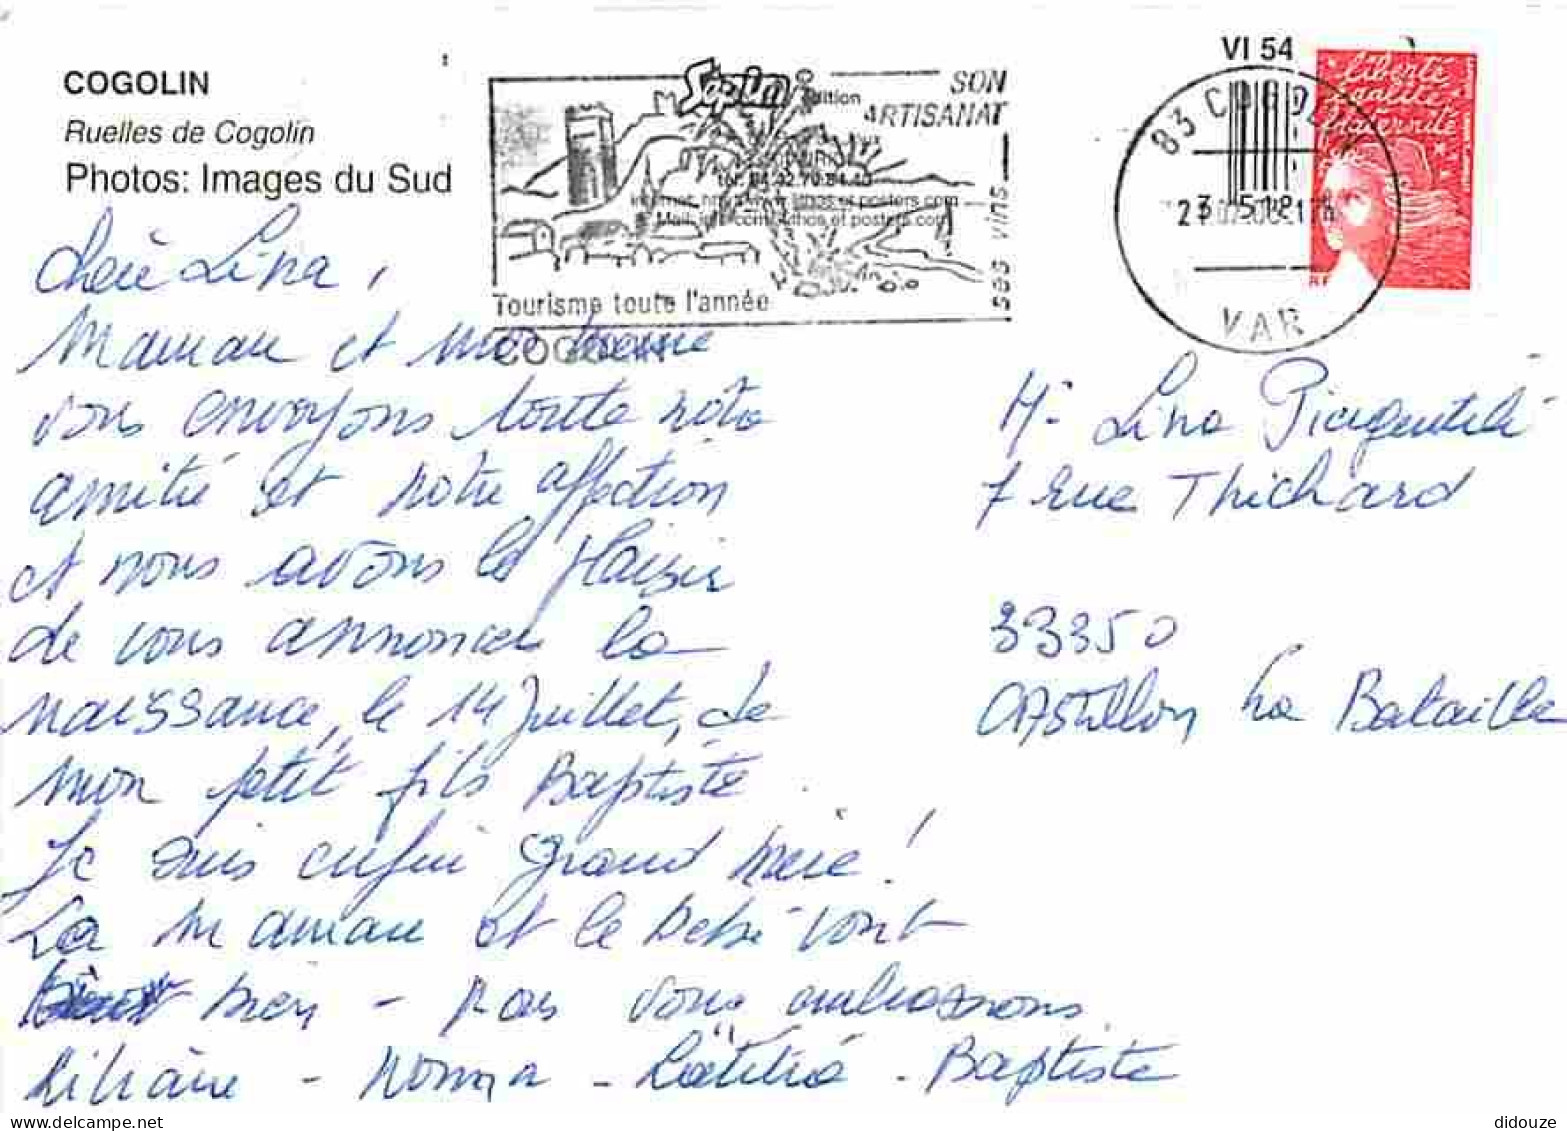 COGOLIN
Ruelles de Cogolin
Photos: Images du Sud
SON
ARTISANAT
ses vins
Tourisme toute l'année
COGOLIN
VI 54
83 COGOLIN
VAR
liberté
égalité
fraternité
Chère Lina,
Maman et moi même
vous envoyons toute notre
amitié et notre affection
et nous avons le plaisir
de vous annoncer la
naissance, le 14 Juillet, de
mon petit fils Baptiste.
Je suis enfin grand mère!
La Maman et le bébé vont
bien - nous vous embrassons
Liliane - Nonna - Laëtitia - Baptiste
Lina
7 Rue Thichard
33350
Castillon La Bataille
didouze